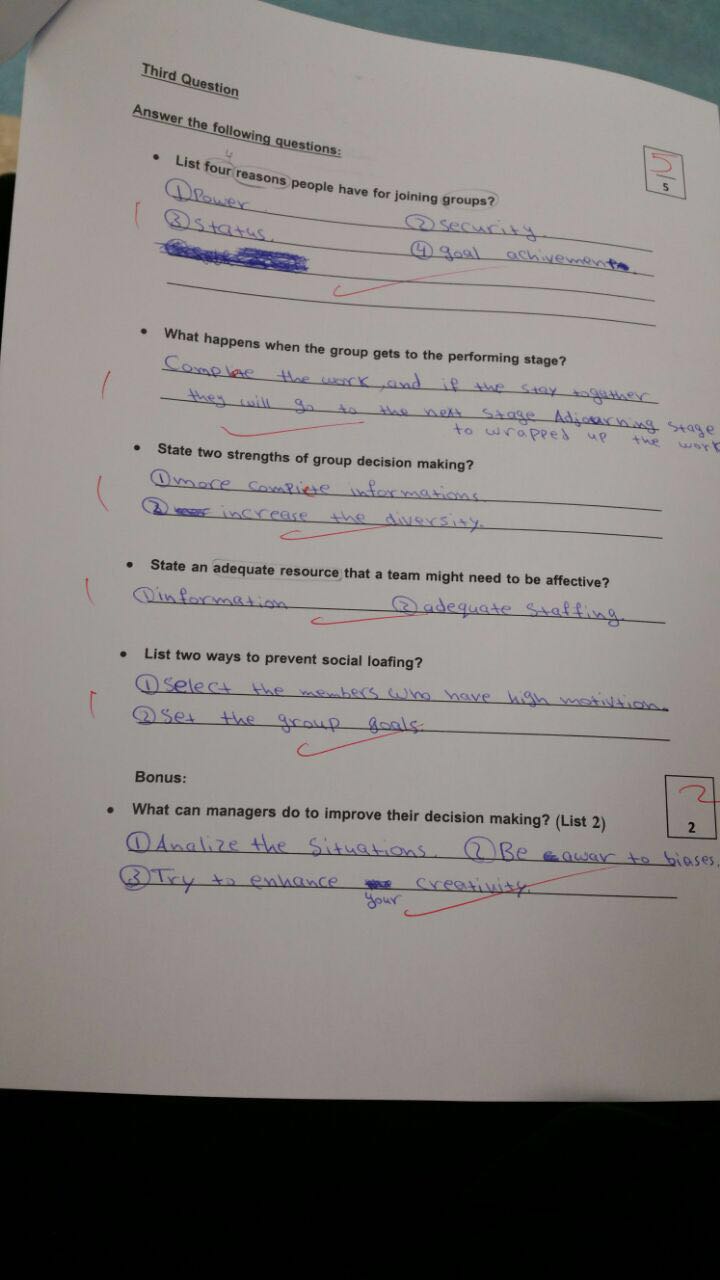 Third Question
Answer the following questions:
4
• List four reasons people have for joining groups?
5
5
① Power
② security.
③ status.
④ goal achivement.
• What happens when the group gets to the performing stage?
Complete the work, and if the stay together
they will go to the next stage Adjourning stage
to wrapped up the work
• State two strengths of group decision making?
① more complete informations.
② increase the diversity.
• State an adequate resource that a team might need to be affective?
① information ② adequate staffing.
• List two ways to prevent social loafing?
① Select the members who have high motivtion.
② Set the group goals.
Bonus:
2
2
• What can managers do to improve their decision making? (List 2)
① Analize the situations. ② Be awar to biases.
③ Try to enhance your creativity.